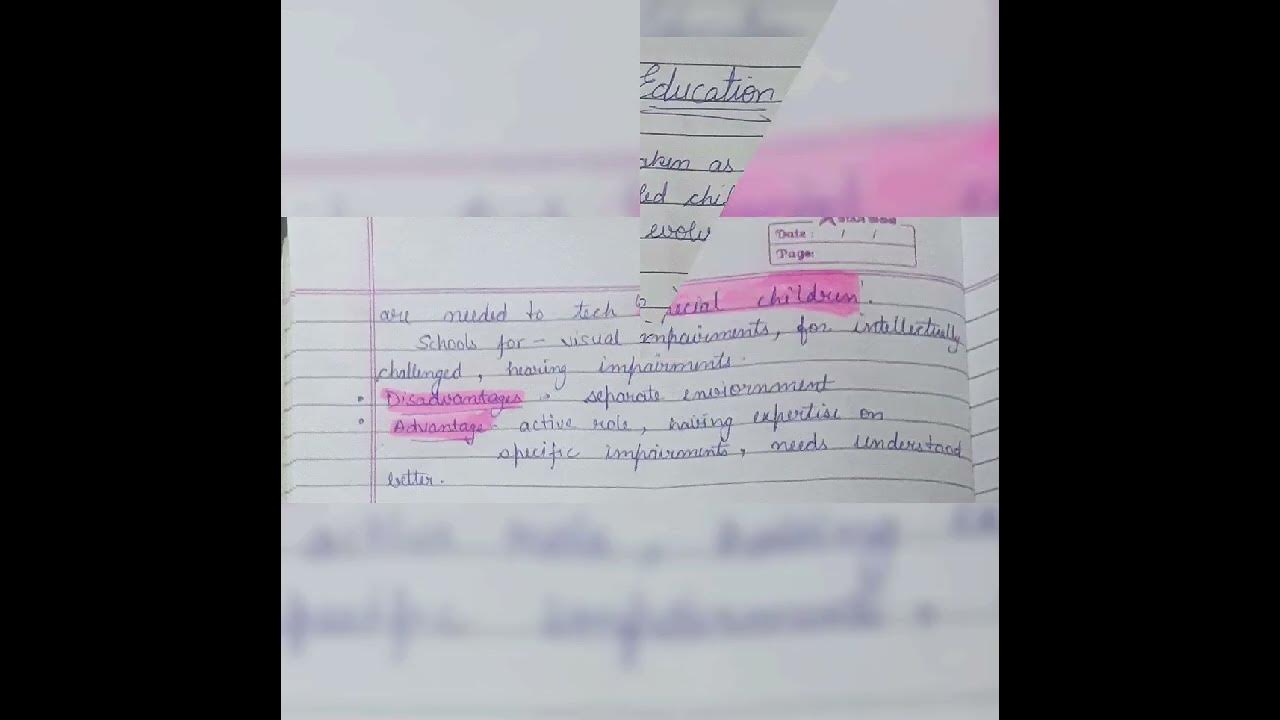 Education
as
evolv
Date: / /
Page:
are needed to tech ecial children'.
Schools for - visual impairments, for intellectually
challenged, hearing impairments.
• Disadvantages • separate enviornment
• Advantage - active role, having expertise on
specific impairments, needs understood
better.